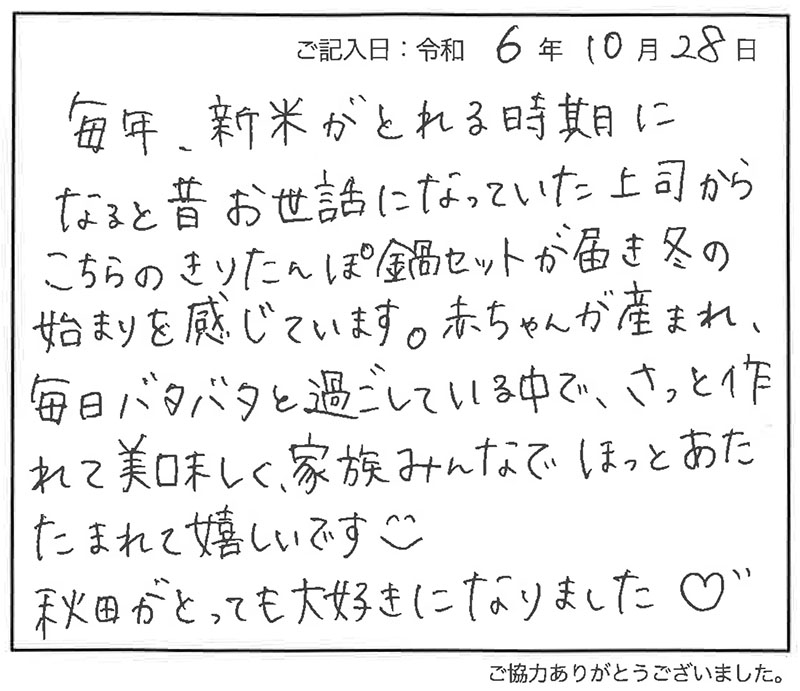 ご記入日：令和 6 年 10 月 28 日
毎年、新米がとれる時期に
なると昔お世話になっていた上司から
こちらのきりたんぽ鍋セットが届き冬の
始まりを感じています。赤ちゃんが産まれ、
毎日バタバタと過ごしている中で、さっと作
れて美味しく、家族みんなでほっとあた
たまれて嬉しいです
秋田がとっても大好きになりました♡
ご協力ありがとうございました。